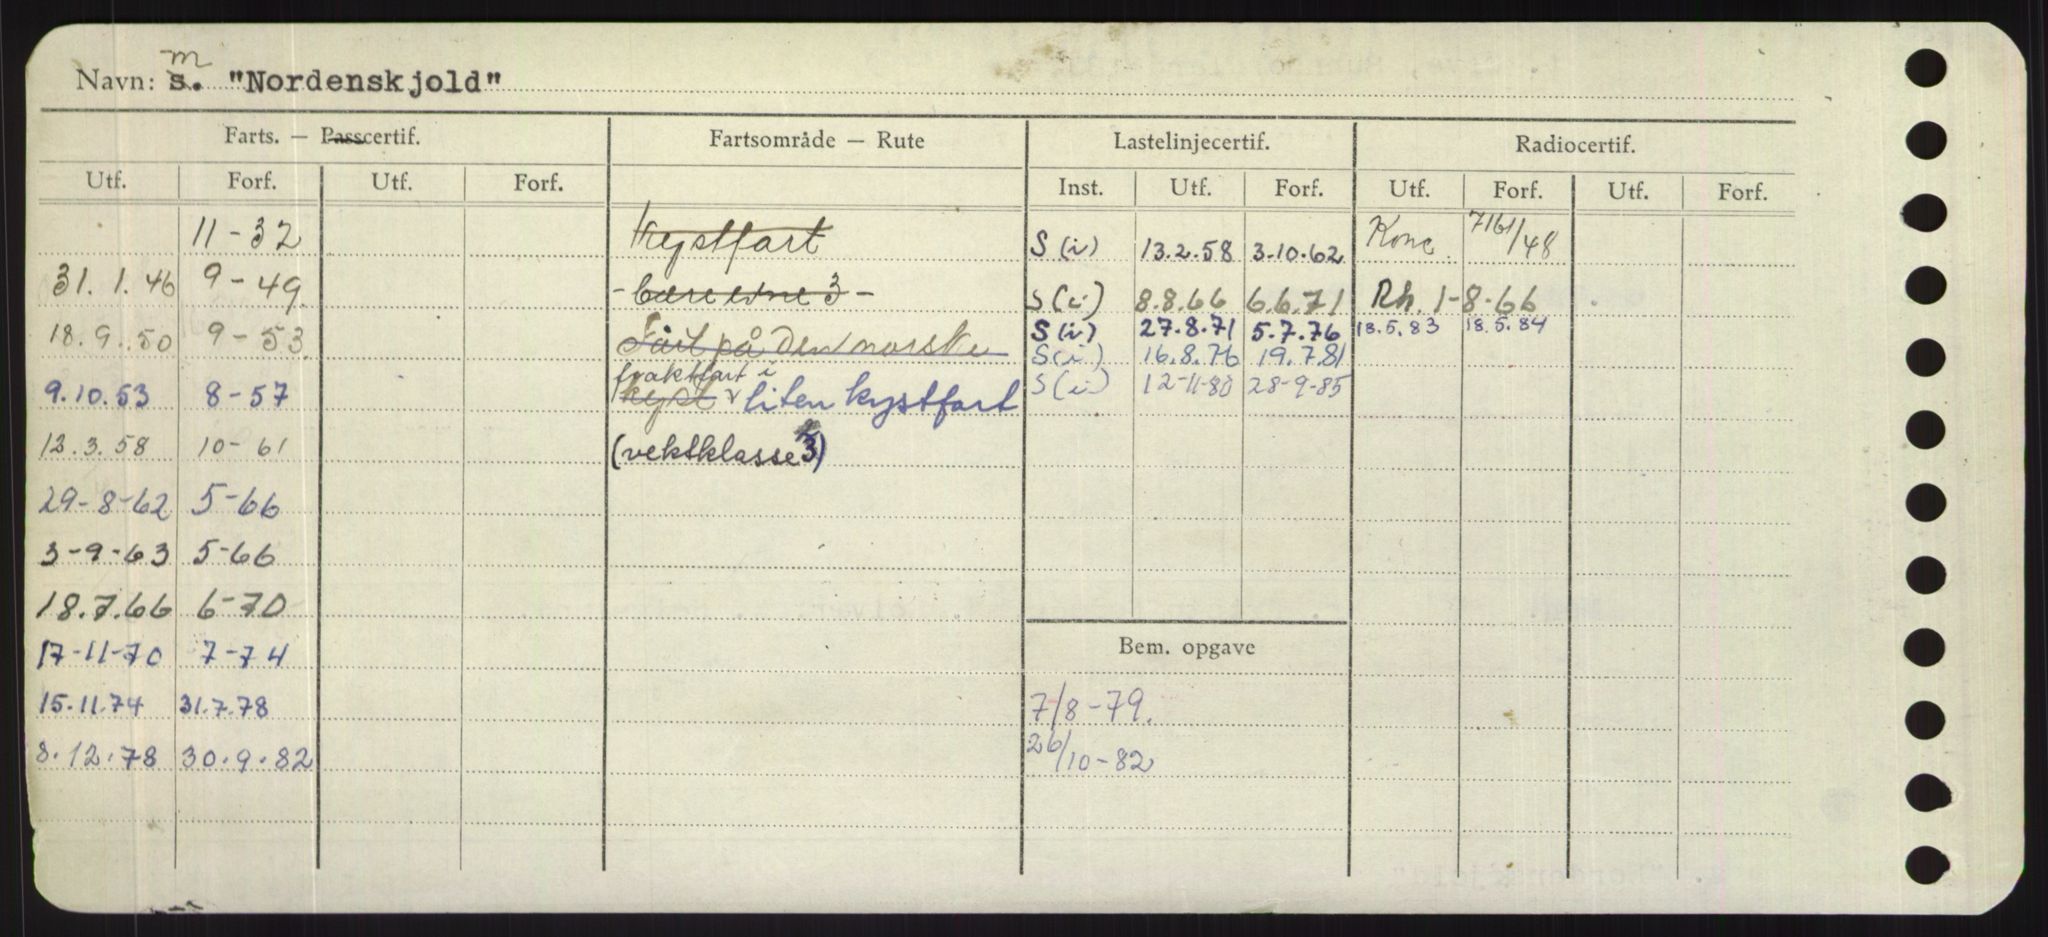 Navn: m s. "Nordenskjold"
Farts. — Passcertif. Fartsområde — Rute Lastelinjecertif. Radiocertif.
Utf. Forf. Utf. Forf. Inst. Utf. Forf. Utf. Forf. Utf. Forf.
11-32 kystfart S (i) 13.2.58 3.10.62 Konc. 48
31.1.46 9-49 - bæreevne 3 - S (i) 8.8.66 6.6.71 Rh. 1-8-66
18.9.50 9-53 Fart på den norske S (i) 27.8.71 5.7.76 18.5.83 18.5.84
S (i) 16.8.76 19.7.81
fraktfart i
9.10.53 8-57 kyst liten kystfart S (i) 12-11-80 28-9-85
12.3.58 10-61 (vektklasse 3)
29-8-62 5-66
3-9-63 5-66
18.7.66 6-70
17-11-70 7-74 Bem. opgave
15.11.74 31.7.78 7/8-79.
8.12.78 30.9.82 26/10-82